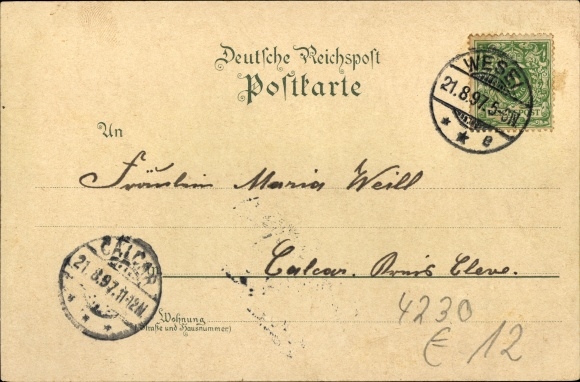 Deutsche Reichspost
Postkarte
WESEL
21.8.97.5-6N.
e
An
Fräulein Maria Weill
CALCAR
21.8.97.11-12N.
Calcar. Kreis Cleve.
Wohnung
(Straße und Hausnummer)
4230
€ 12